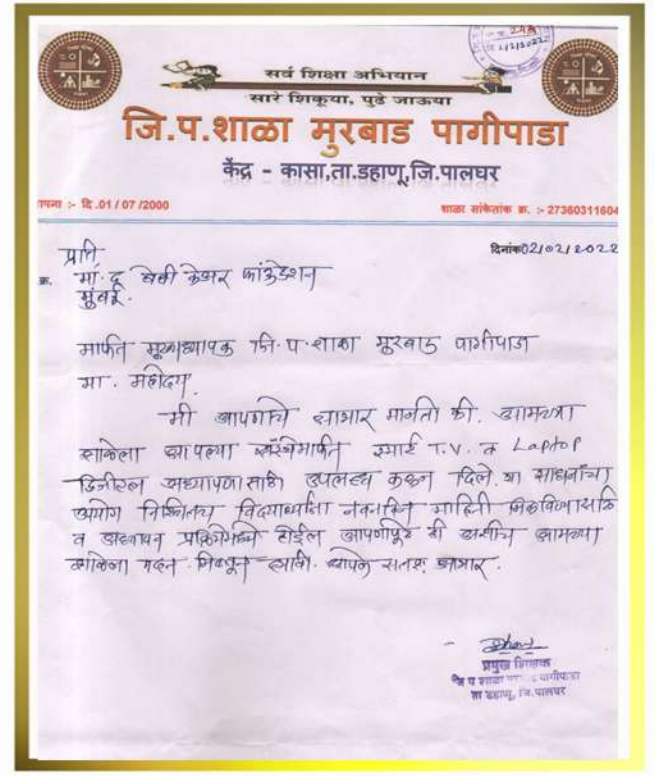 सर्व शिक्षा अभियान
सारे शिकूया, पुढे जाऊया
जि.प.शाळा मुरबाड पागीपाडा
केंद्र - कासा,ता.डहाणू,जि.पालघर
पना :- दि.01 / 07 /2000
शाळा सांकेतांक क्र. :- 27360311604
दिनांक02/02/2022
प्रति
क्र.
मा. दू बेबी केअर फांऊडेशन
मुंबई.
मार्फत मुख्याध्यापक जि. प. शाळा मुरबाड पागीपाडा
मा. महोदय,
मी आपणांचे आभार मानतो की. आमच्या
शाळेला आपल्या संस्थेमार्फत स्मार्ट T.V. व Laptop
डिजीटल अध्यापणासाठी उपलब्ध करून दिले. या साधनांचा
उपयोग निश्चितच विद्यार्थ्यांना नवनविन माहिती मिळविण्यासाठी
व अध्यापन प्रक्रियेमध्ये होईल आपणांपुढे ही अशीच आमच्या
शाळेला मदत मिळवून द्यावी. आपले सतशः आभार.
प्रमुख शिक्षक
जि प शाळा पागीपाडा
ता डहाणू, जि.पालघर